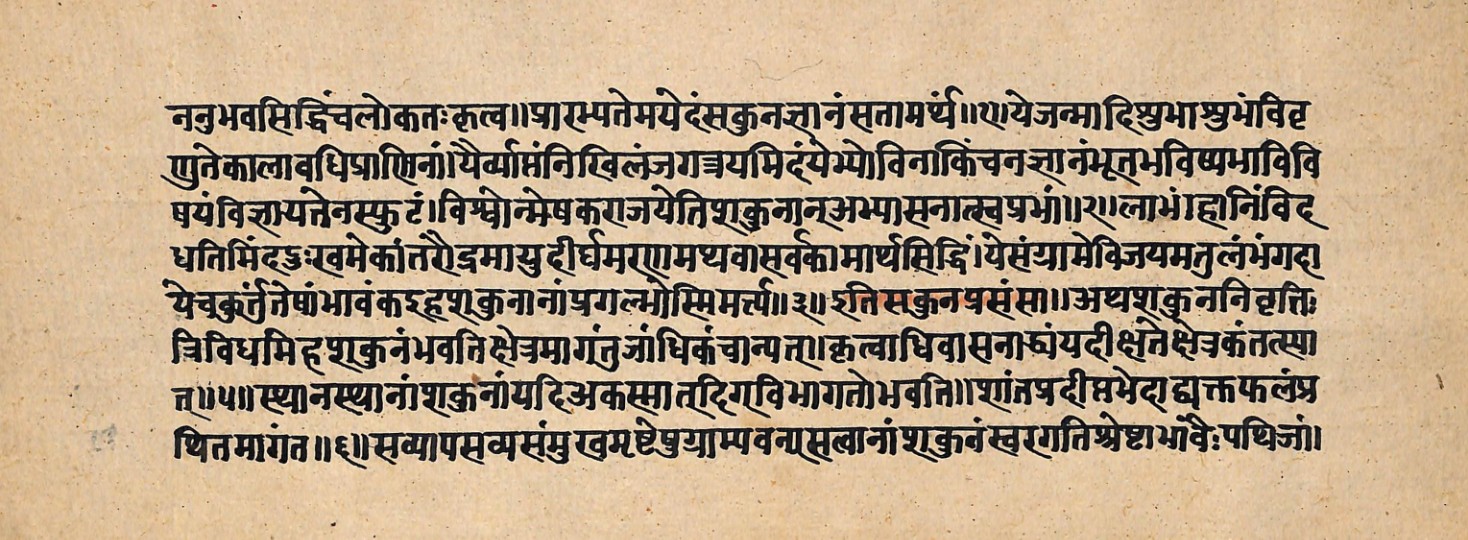 ननुभवसिद्धिंचलोकतःकृत्व॥प्रारभ्पतेमयेदंसकुनज्ञानंसतामर्थं॥१॥येजन्मादिशुभाशुभंविवृ
णुतेकालावधिप्राणिनां।यैर्व्याप्तंनिखिलंजगत्त्रयमिदंयेभ्योविनाकिंचनज्ञानंभूतभविष्यभाविवि
षयंविज्ञायतेनस्फुटं।विश्वोन्मेषकराजयेतिशकुनान्अभ्यासनात्स्वप्रभां॥२॥लाभंहानिंविद
धतिमिंदडुःखमेकांतरौद्रमायुदीर्घमरणमथवासर्वकामार्थसिद्धिं।येसंग्रामेविजयमतुलंभंगदा
येचकुर्त्तुतेषांभावंकइहशकुनानांप्रगल्भोस्मिमर्त्त्य॥३॥इतिसकुनप्रसंसा॥अथशकुननिवृत्तिः
त्रिविधमिहशकुनंभवतिक्षेत्रमागंतुजांधिकंचान्पत॥कृत्वाधिवासनाद्यंयदीक्षतेक्षेत्रकंतत्स्या
त्॥५॥स्थानस्थानांशकुनांयदिअकस्मातदिगविभागतोभवति॥शांतप्रदीप्तभेदाद्यक्तफलंप्र
थितमागंत॥६॥सव्यापसव्यसंमुखमृष्टेषुग्राम्यवन्यसत्वानांशकुवंस्वरगतिश्रेष्टाभांवैःपथिजां।